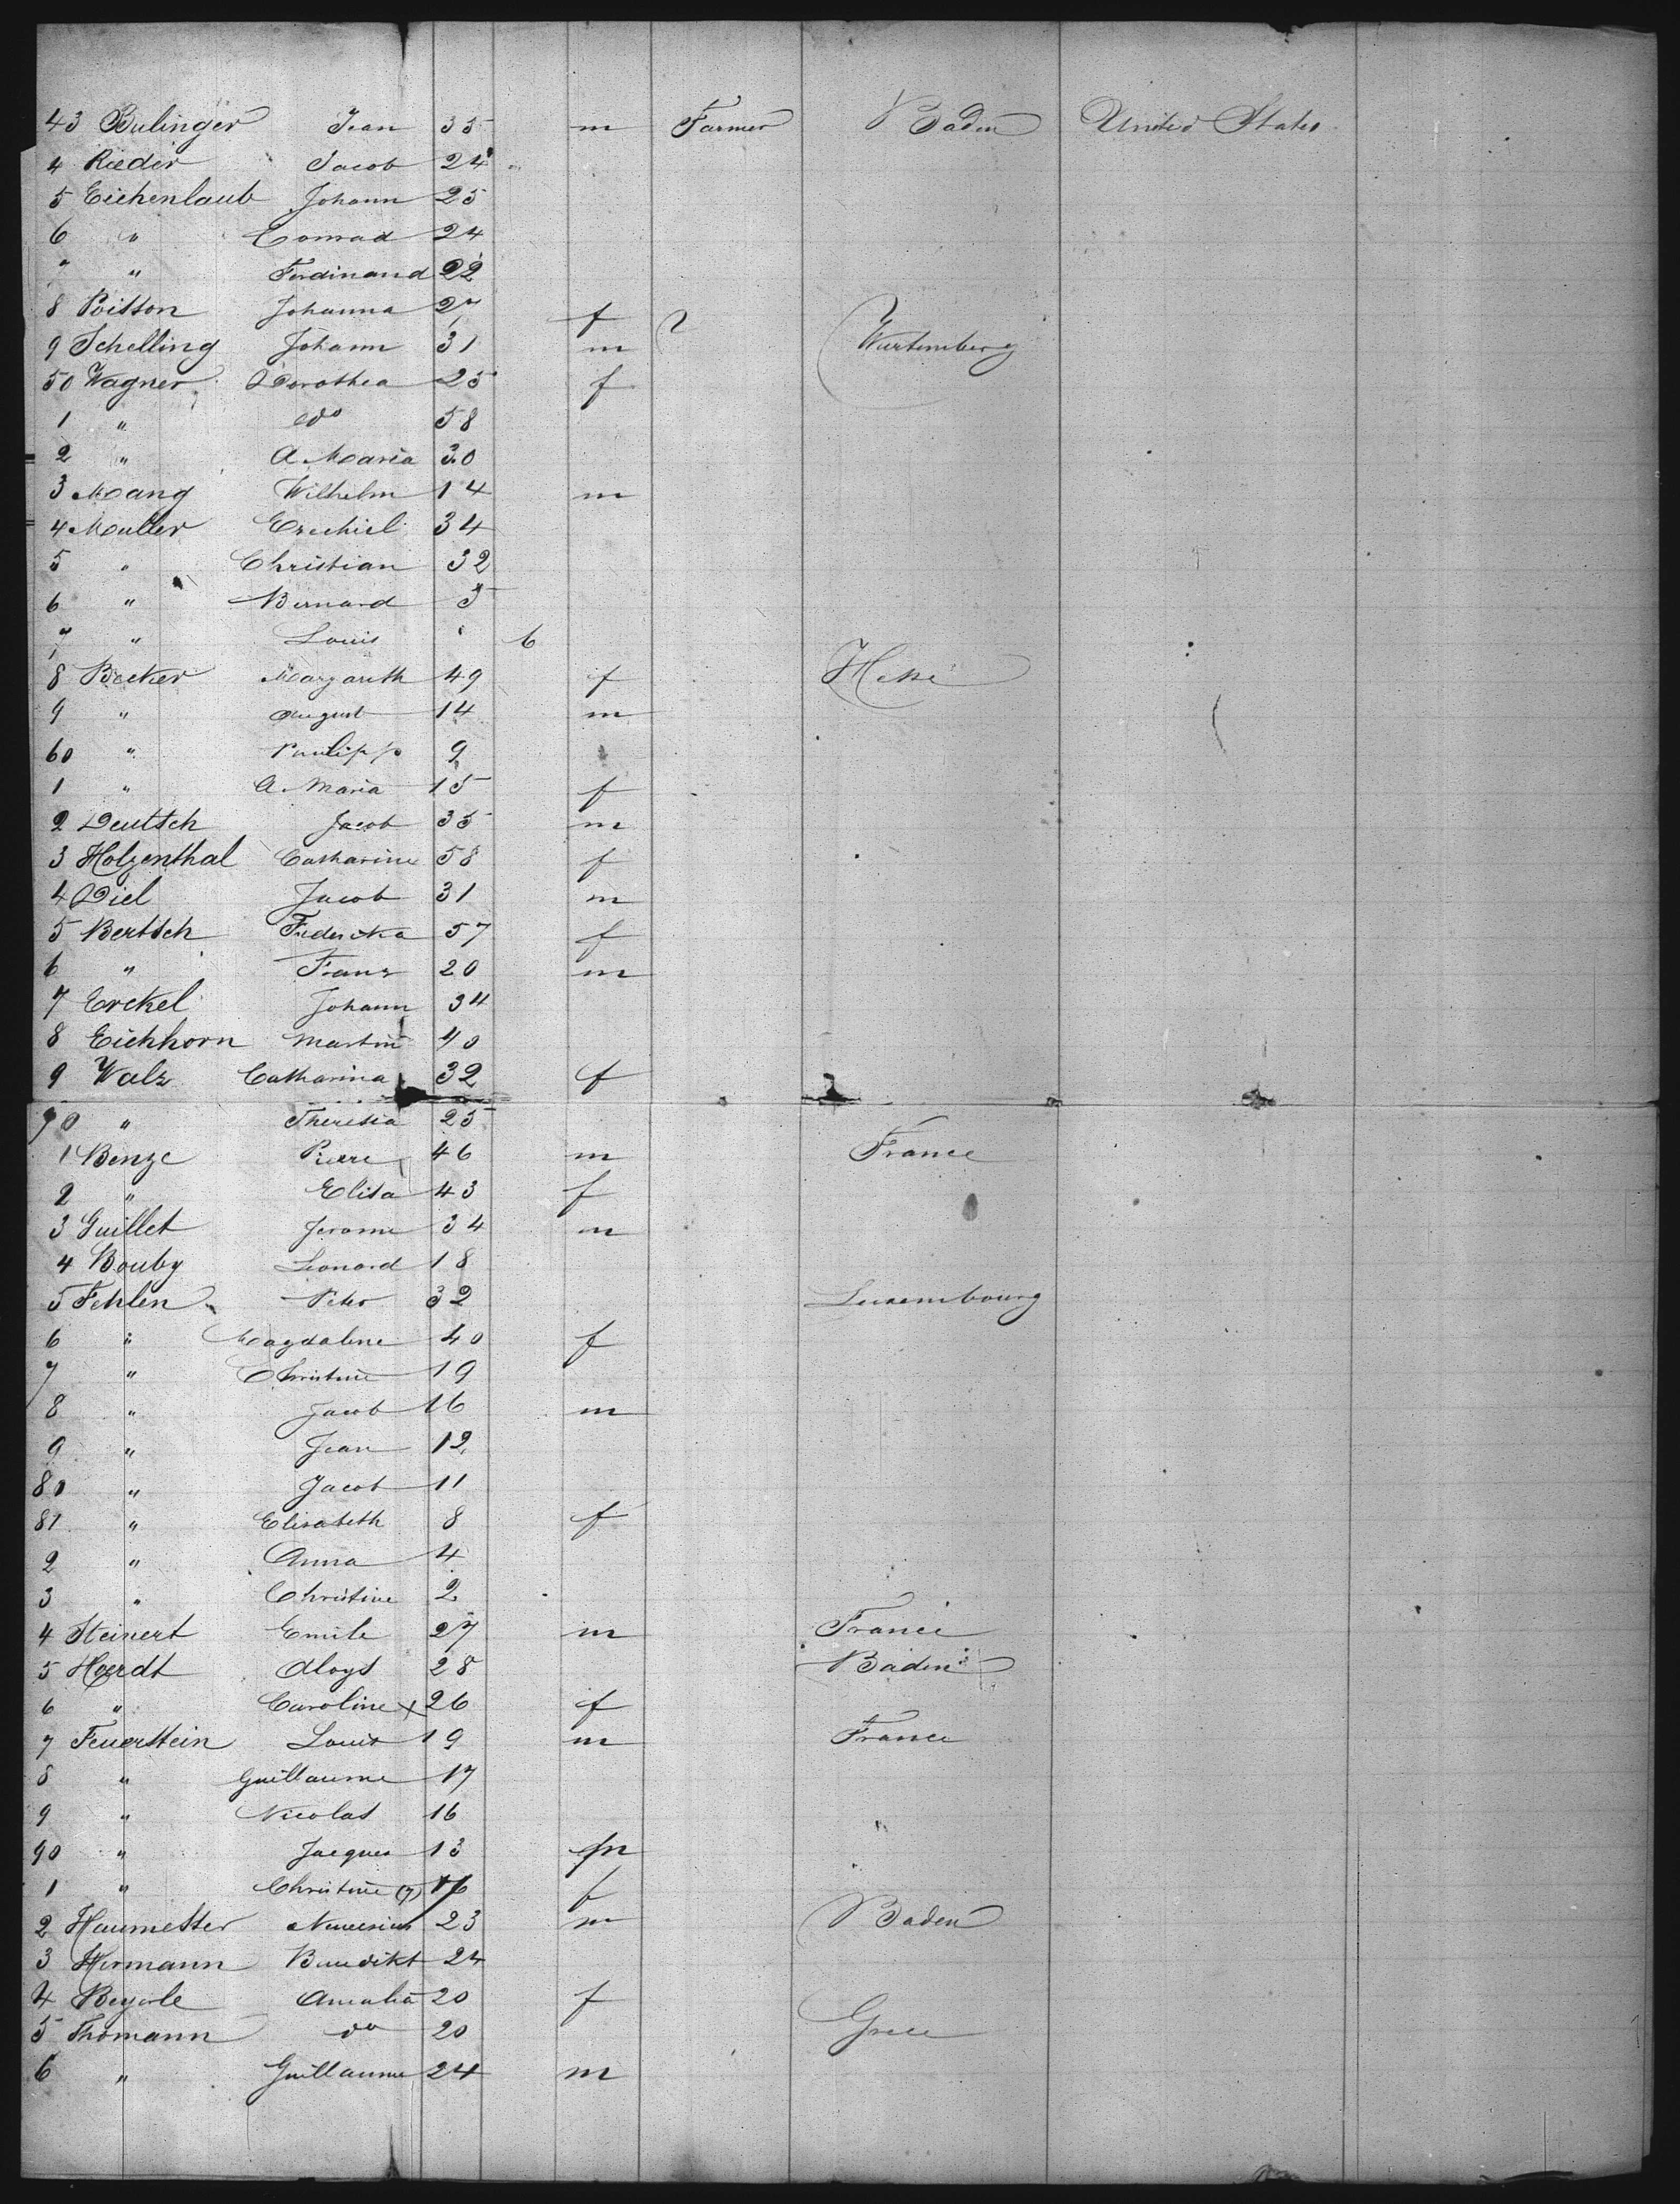 43 Bulinger Jean 35 m Farmer Baden United States
4 Rieder Jacob 24
5 Eichenlaub Johann 25
6 " Conrad 24
" " Ferdinand 22
8 Poisson Johanna 27 f
9 Schelling Johann 31 m Wurtemberg
50 Wagner Dorothea 25 f
1 " do 58
2 " A Maria 30
3 Mang Wilhelm 14 m
4 Muller Ezechiel 34
5 " Christian 32
6 " Bernard 5
7 " Louis " 6
8 Becker Margareth 49 f Hesse
9 " August 14 m
60 " Philipp 9
1 " A. Maria 15 f
2 Deutsch Jacob 35 m
3 Holzenthal Catharine 58 f
4 Diel Jacob 31 m
5 Bertsch Fredericka 57 f
6 " Franz 20 m
7 Erckel Johann 34
8 Eichhorn Martin 40
9 Walz Catharina 32 f
70 " Theresia 25
1 Benze Pierre 46 m France
2 " Elisa 43 f
3 Guillet Jerome 34 m
4 Bouby Leonard 18
5 Fehlen Peter 32 Luxembourg
6 " Magdalene 40 f
7 " Christine 19
8 " Jacob 16 m
9 " Jean 12
80 " Jacob 11
81 " Elisabeth 8 f
2 " Anna 4
3 " Christine 2
4 Steinert Emile 27 m France
5 Hoerdt Aloys 28 Baden
6 " Caroline x 26 f
7 Feuerstein Louis 19 m France
8 " Guillaume 17
9 " Nicolas 16
90 " Jacques 13 m
1 " Christine (7) f
2 23 m Baden
3 Hermann Benedikt 24
4 Beyerle Amalia 20 f
5 Thomann do 20 Grece
6 " Guillaume 24 m